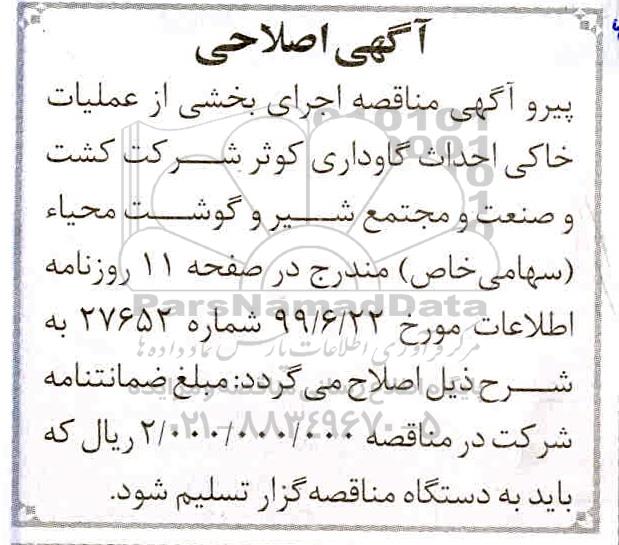 آگهی اصلاحی
پیرو آگهی مناقصه اجرای بخشی از عملیات
خاکی احداث گاوداری کوثر شرکت کشت
و صنعت و مجتمع شیر و گوشت محیاء
(سهامی خاص) مندرج در صفحه ۱۱ روزنامه
ParsNamadData
اطلاعات مورخ ۹۹/۶/۲۲ شماره ۲۷۶۵۲ به
مرکز فرآوری اطلاعات پارس نماد داده ها
شرح ذیل اصلاح می گردد: مبلغ ضمانتنامه
۰۲۱-۸۸۳۴۹۶۷۰-۵
شرکت در مناقصه ۲/۰۰۰/۰۰۰/۰۰۰ ریال که
باید به دستگاه مناقصه گزار تسلیم شود.